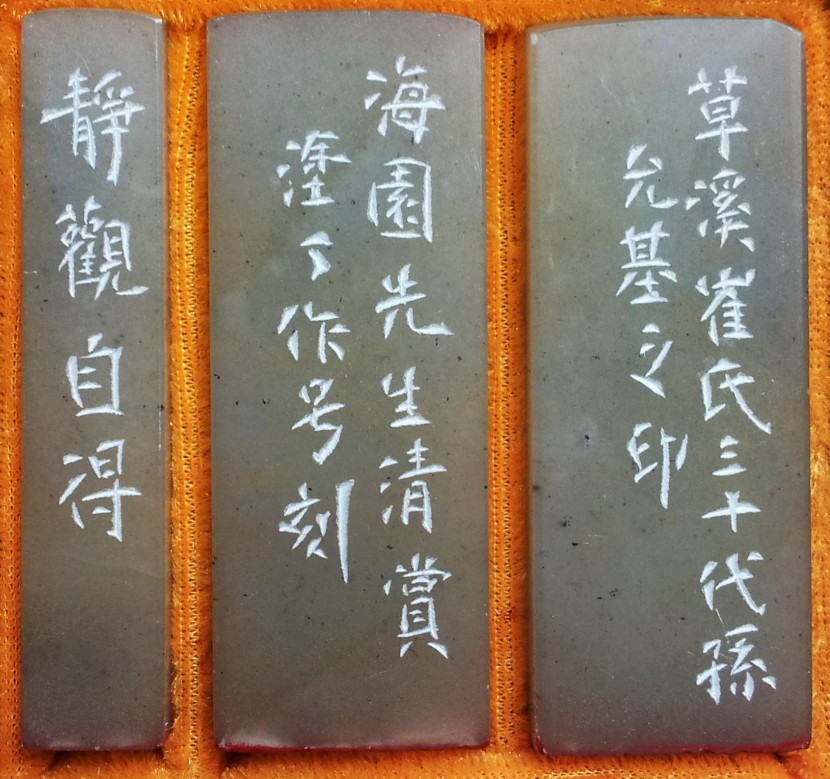 草溪崔氏三十代孫
允基之印
海園先生清賞
塗丁作号刻
靜觀自得